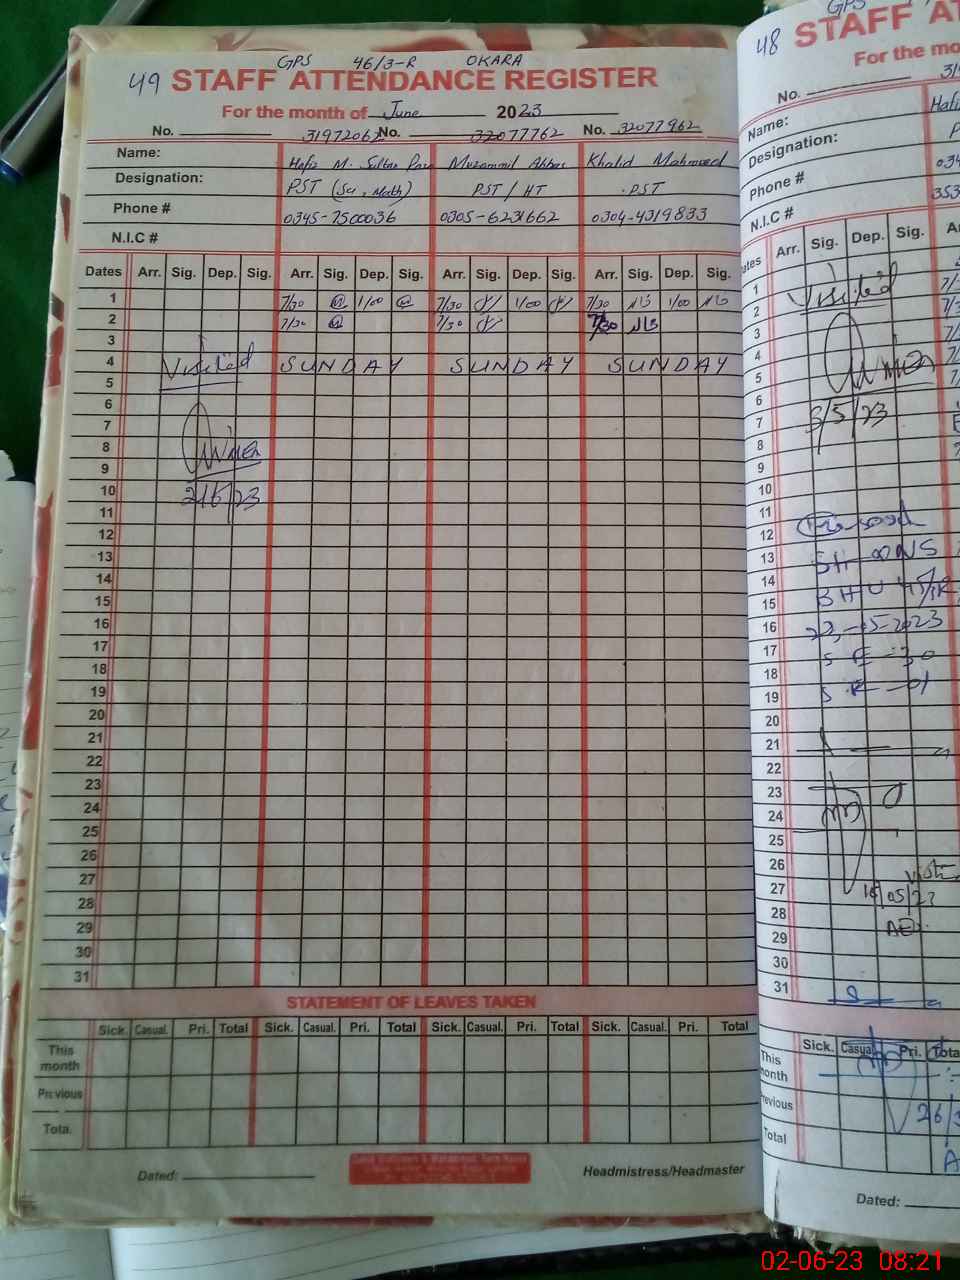 GPS 46/3-R OKARA
49 STAFF ATTENDANCE REGISTER
For the month of June 2023
No. 31972062 No. 32077762 No. 32077962
Name: Hafiz M. Sultan Muzammil Abbas Khalid Mahmood
Designation: PST (Sci, Math) PST / HT PST
Phone # 0345-7500036 0305-6231662 0304-4319833
N.I.C #
Dates Arr. Sig. Dep. Sig. Arr. Sig. Dep. Sig. Arr. Sig. Dep. Sig. Arr. Sig. Dep. Sig.
1 7/30 1/00 7/30 1/00 7/30 1/00
2 7/30 7/30 7/30
3
4 Visited SUNDAY SUNDAY SUNDAY
5
6
7
8
9
10 2/6/23
11
12
13
14
15
16
17
18
19
20
21
22
23
24
25
26
27
28
29
30
31
STATEMENT OF LEAVES TAKEN
Sick. Casual. Pri. Total Sick. Casual. Pri. Total Sick. Casual. Pri. Total Sick. Casual. Pri. Total
This month
Previous
Total
Dated: Headmistress/Headmaster
GPS
48 STAFF AT
For the mo
No.
Name: Hafi
Designation: P
Phone # 034
N.I.C # 353
Dates Arr. Sig. Dep. Sig. Ar
1 Visited
2
3
4
5
6
7 3/5/23
8
9
10
11
12
13
14 BHU 45/3R
15
16 23-05-2023
17
18
19
20
21
22
23
24
25
26
27 16/05/23
28
29
30
31
Sick. Casual Pri. Total
This month
Previous 26/
Total
Dated:
02-06-23 08:21